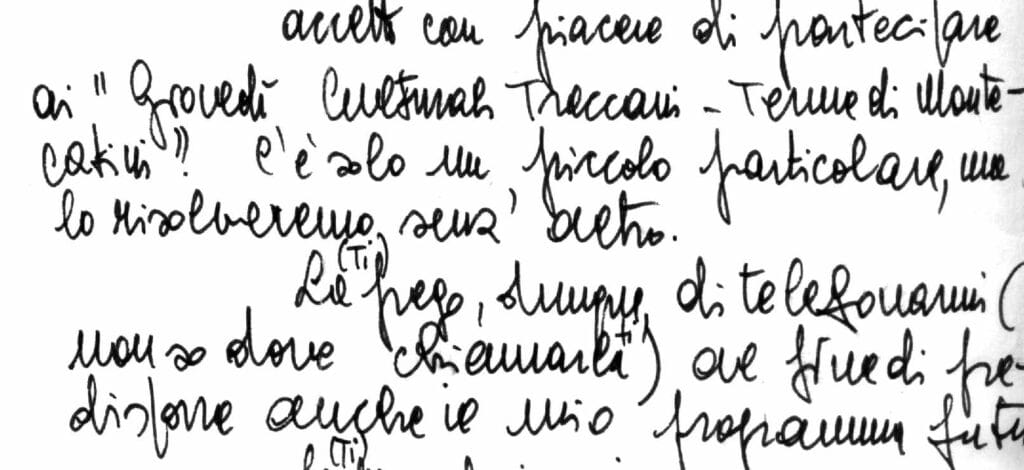 accetto con piacere di partecipare
ai "Giovedì Culturali Treccani - Terme di Monte-
catini". C'è solo un piccolo particolare, ma
lo risolveremo senz'altro.
La (Ti) prego, dunque, di telefonarmi (
non so dove chiamarla ti) al fine di pre-
disporre anche il mio programma futu
(Ti)